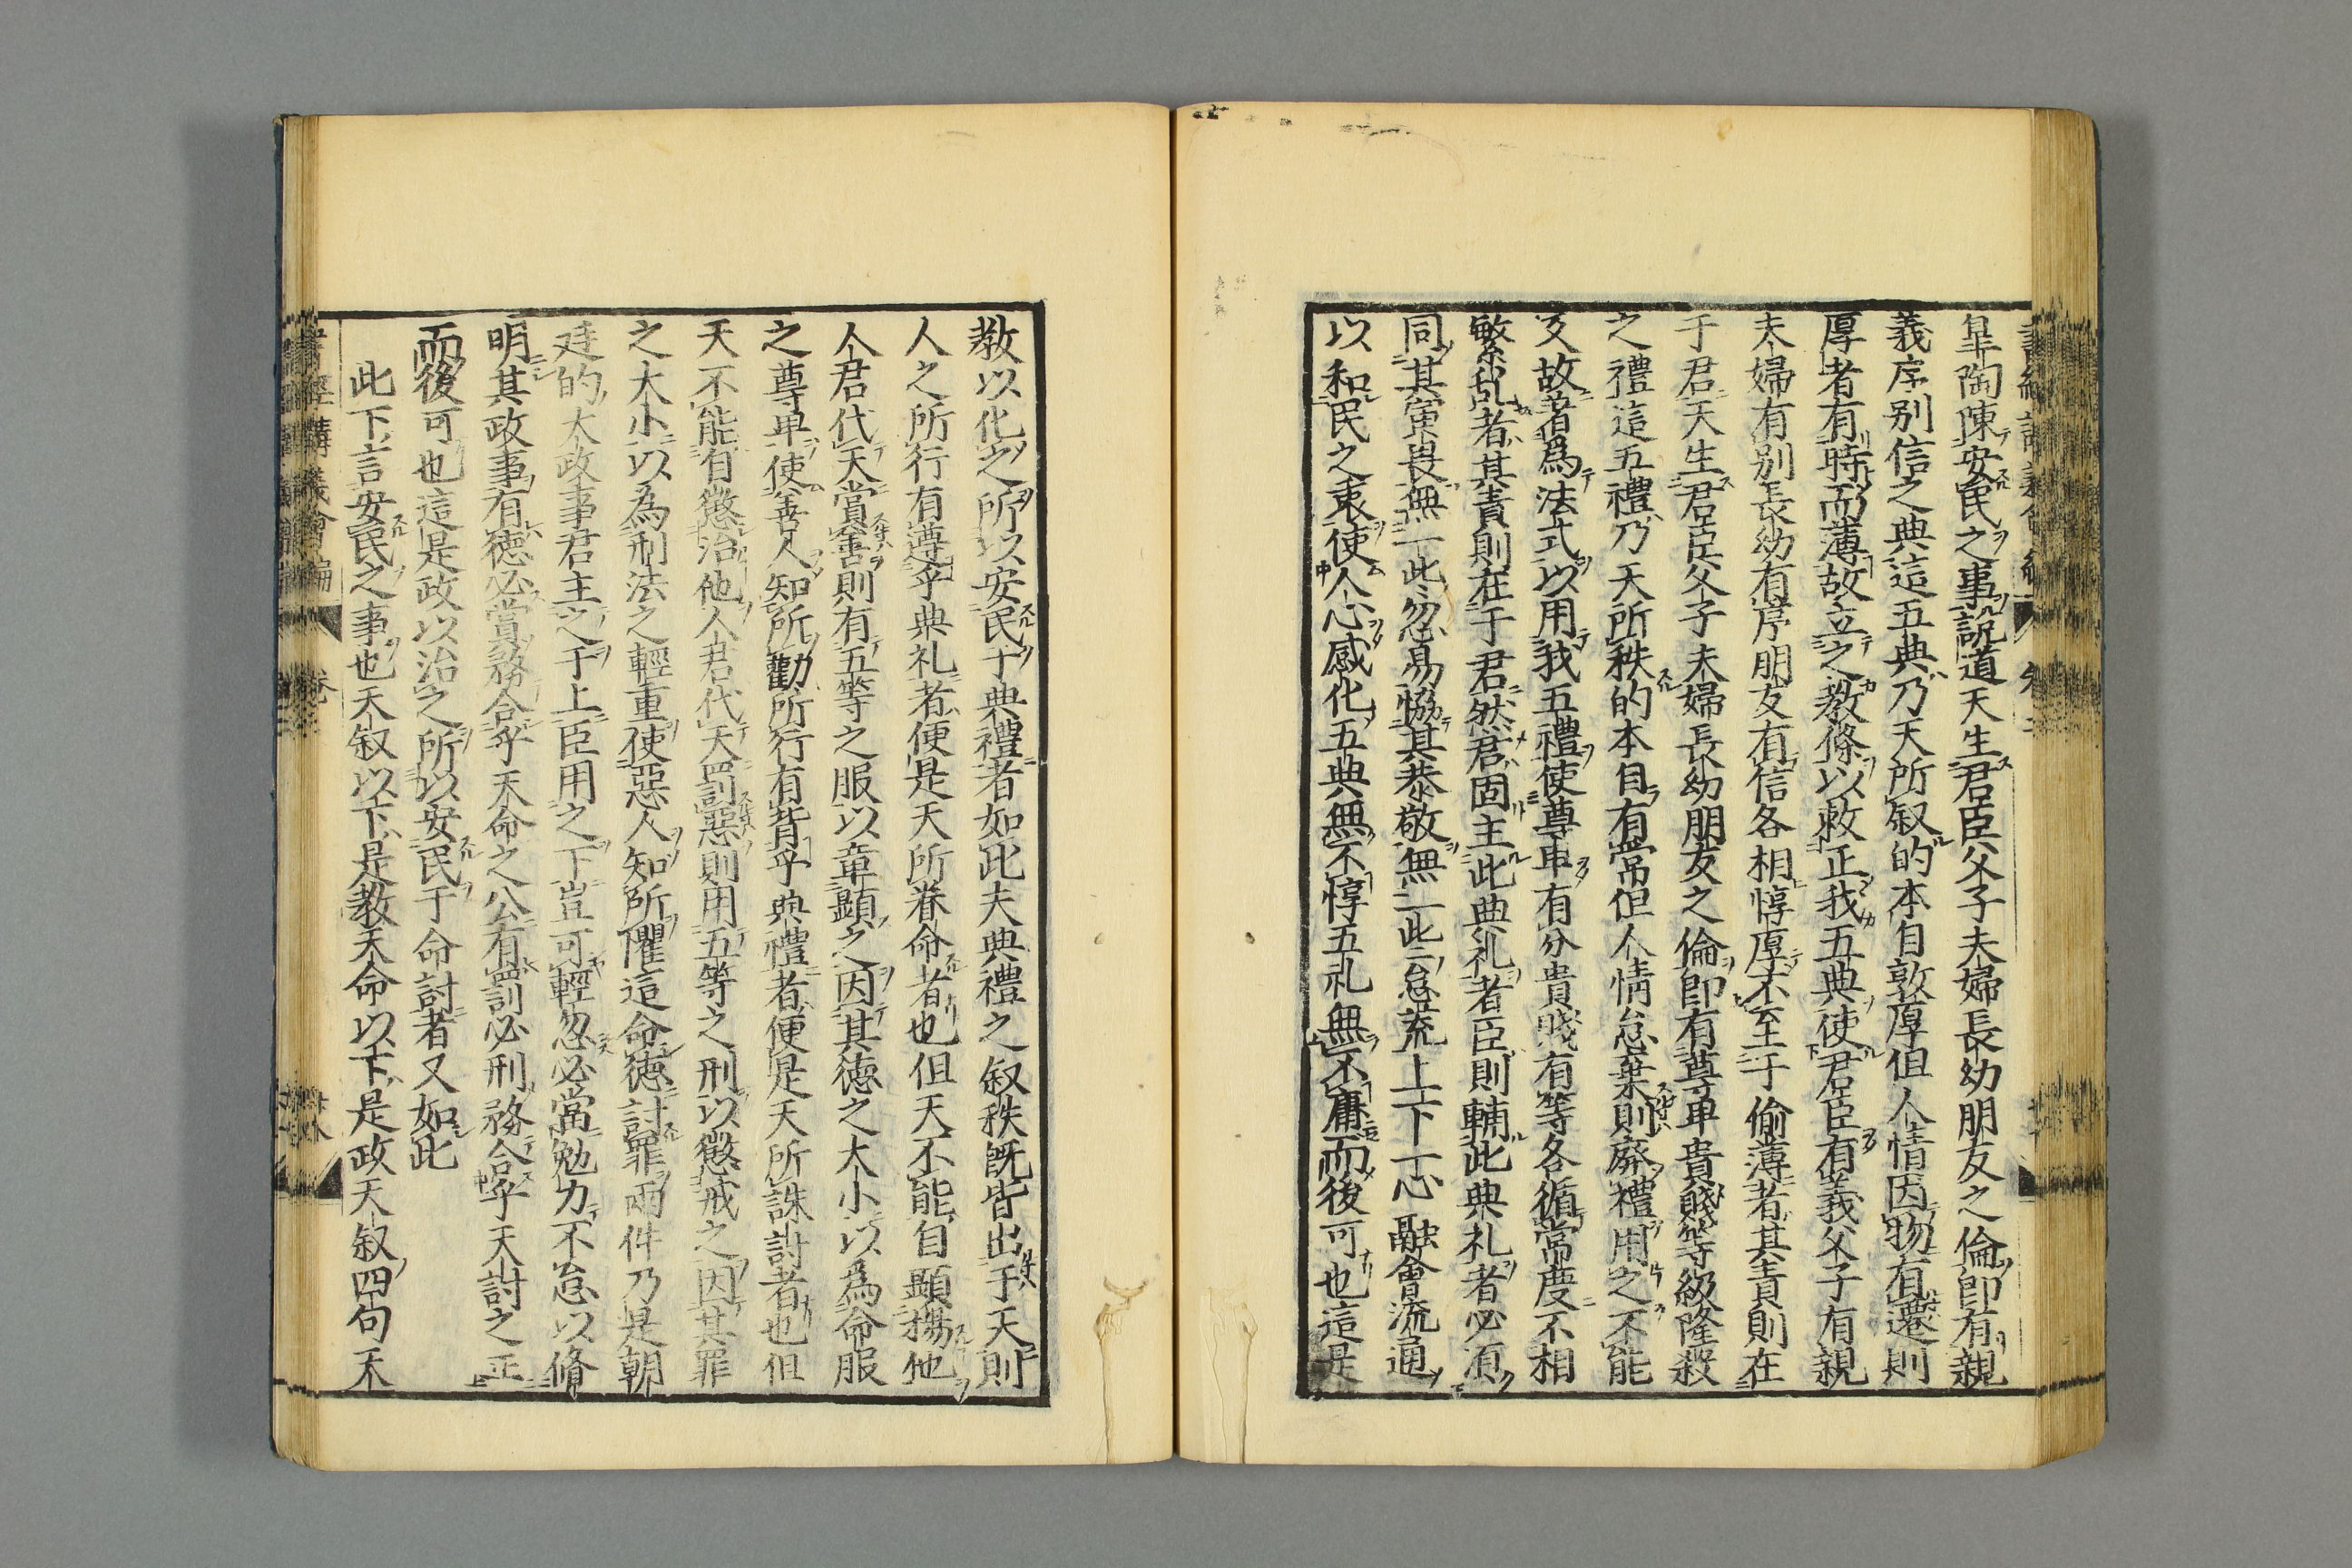 皐陶陳安民之事說道天生君臣父子夫婦長幼朋友之倫卽有親
義序别信之典這五典乃天所叙的本自敦厚但人情因物有遷則
厚者有時而薄故立之教條以敕正我五典使君臣有義父子有親
夫婦有别長幼有序朋友有信各相惇厚不至于偷薄者其責則在
于君天生君臣父子夫婦長幼朋友之倫卽有尊卑貴賤等級隆殺
之禮這五禮乃天所秩的本自有常但人情怠棄則廢禮用之不能
久故著爲法式以用我五禮使尊卑有分貴賤有等各循常度不相
繁乱者其責則在于君然君固主此典礼者臣則輔此典礼者必須
同其寅畏無一此忽易恊其恭敬無一此怠荒上下一心融會流通
以和民之衷使人心感化五典無不惇五礼無不庸而後可也這是
教以化之所以安民于典禮者如此夫典禮之叙秩旣皆出于天則
人之所行有遵乎典礼者便是天所眷命者也但天不能自顯揚他
人君代天賞善則有五等之服以章顯之因其徳之大小以爲命服
之尊卑使善人知所勸所行有背乎典禮者便是天所誅討者也但
天不能自懲治他人君代天罰惡則用五等之刑以懲戒之因其罪
之大小以爲刑法之輕重使惡人知所懼這命徳討罪兩件乃是朝
廷的大政事君主之于上臣用之下豈可輕忽必當勉力不怠以脩
明其政事有徳必賞務合乎天命之公有罰必刑務合乎天討之正
而後可也這是政以治之所以安民于命討者又如此
此下言安民之事也天叙以下是教天命以下是政天叙四句天
書經講義會編
卷